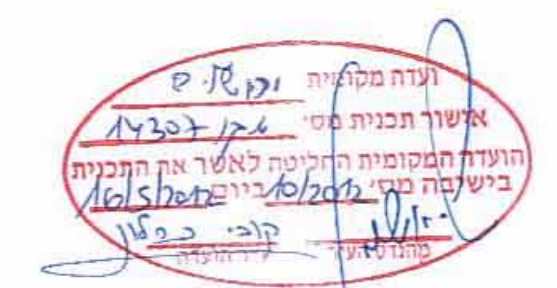 ועדה מקומית ירושלים
אישור תכנית מס' 14307
הועדה המקומית החליטה לאשר את התכנית
בישיבה מס' 10/2012 ביום 16/5/2012
קובי כחלון
מהנדס העיר יו"ר הועדה